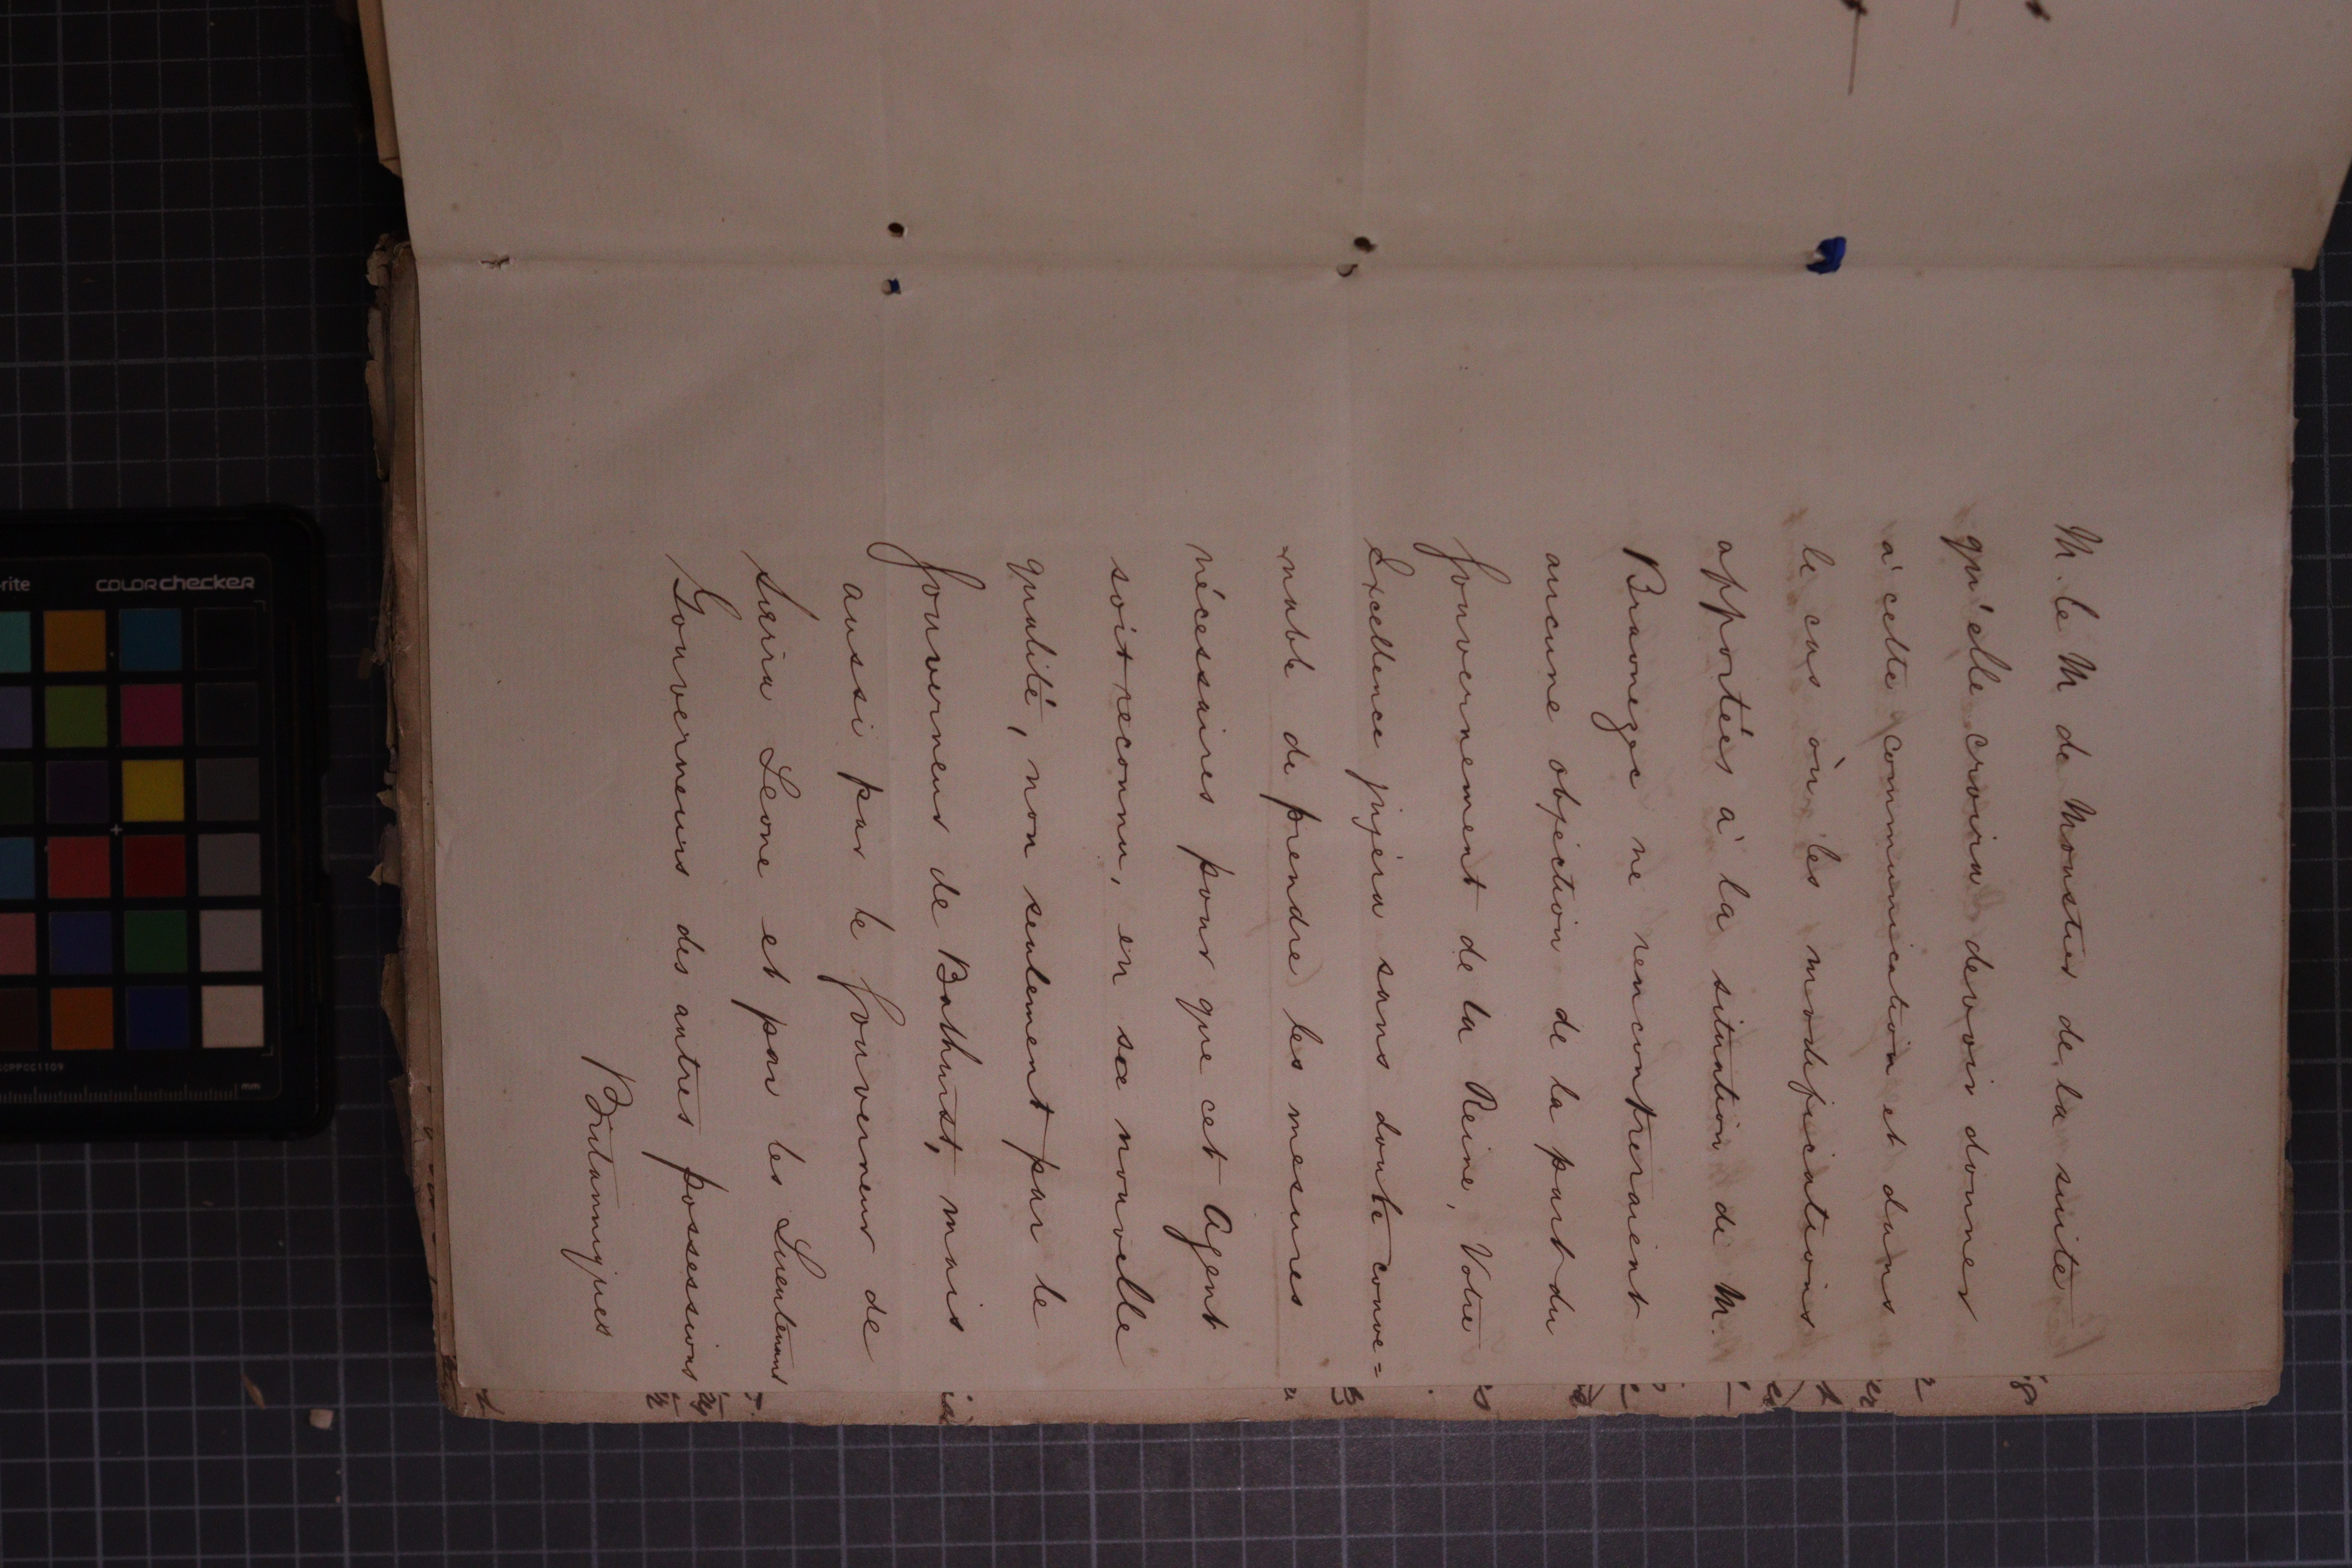 M. le M. de Moustier de la suite
qu'elle croira devoir donner
à cette communication et dans
le cas où les modifications
apportées à la situation de M.
Braonezec ne rencontreraient
aucune objection de la part du
Gouvernement de la Reine, Votre
Excellence jugera sans doute conve=
=nable de prendre les mesures
nécessaires pour que cet Agent
soit reconnu, en sa nouvelle
qualité, non seulement par le
Gouverneur de Bathurst, mais
aussi par le Gouverneur de
Sierra Leone et par les Lieutenans
Gouverneurs des autres possessions
Britanniques
colorchecker
mm